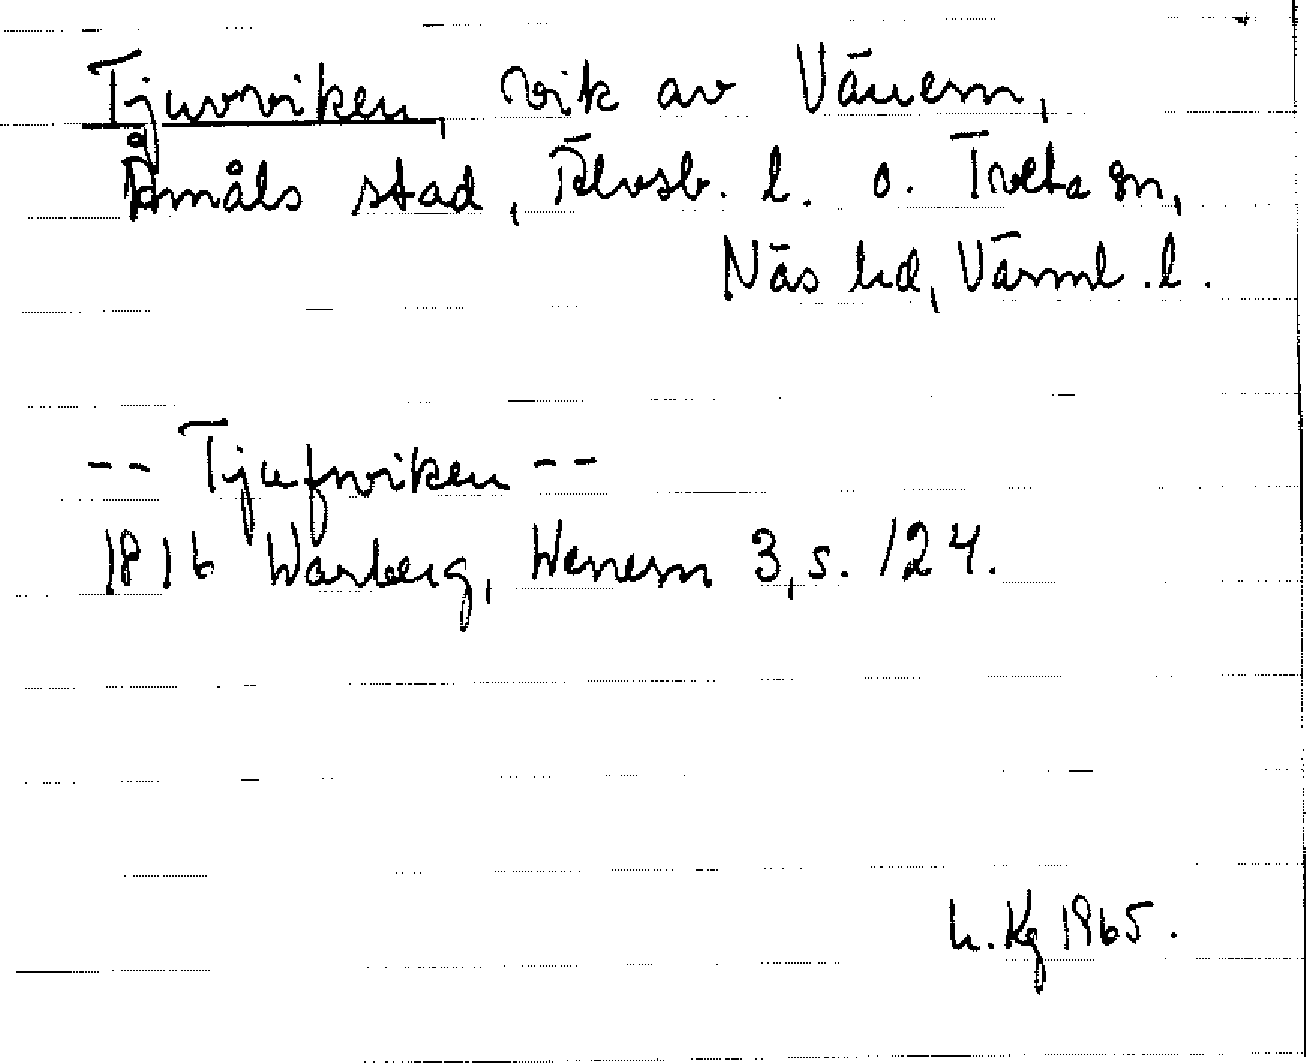 Tjuvviken, vik av Vänern,
Åmåls stad, Älvsb. l. o. Tveta sn,
Näs hd, Värml. l.
-- Tjufwiken --
1816 Warberg, Wenern 3, s. 124.
h. Kg 1965.